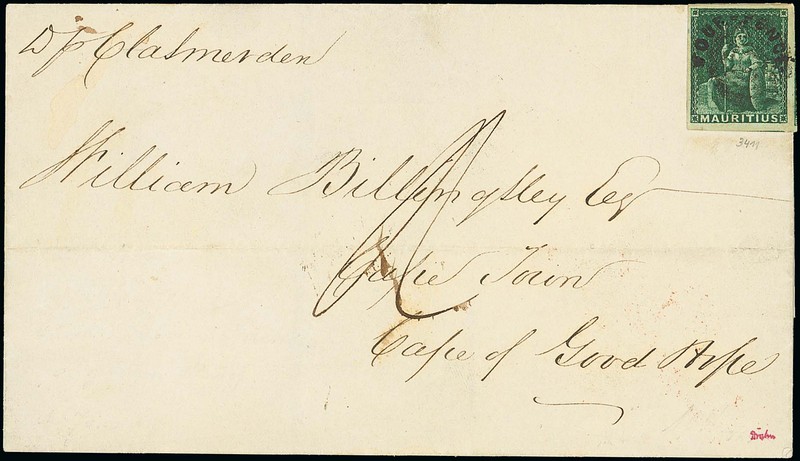 p Clasmerden
FOUR-PENCE
MAURITIUS
3411
William Billingsley Esq
Cape Town
Cape of Good Hope